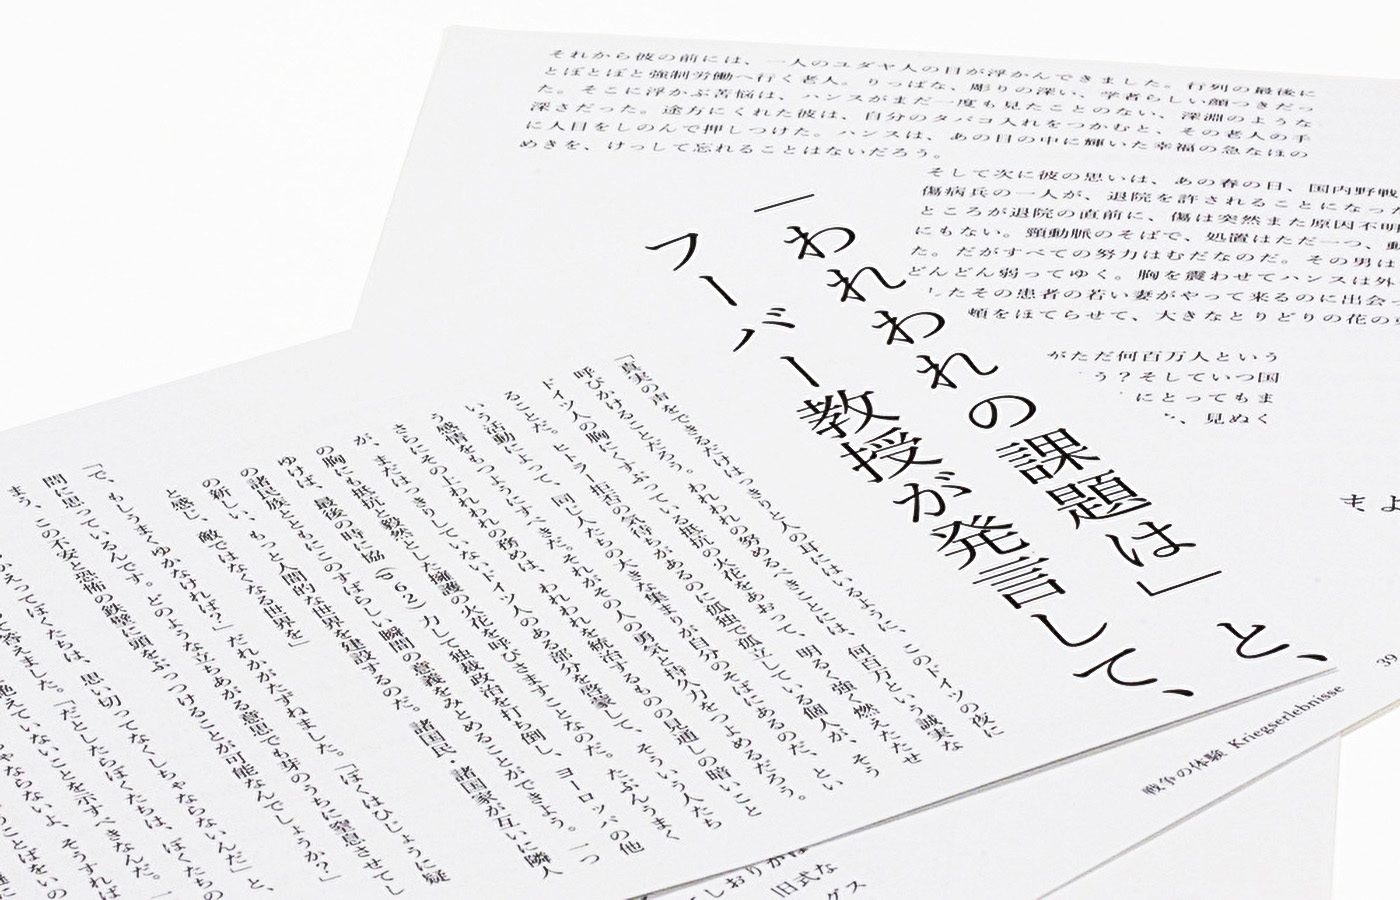 それから彼の前には、一人のユダヤ人の目が浮かんできました。行列の最後に
とぼとぼと強制労働へ行く老人。りっぱな、彫りの深い、学者らしい顔つきだっ
た。そこに浮かぶ苦悩は、ハンスがまだ一度も見たことのない、深淵のような
深さだった。途方にくれた彼は、自分のタバコ入れをつかむと、その老人の手
に人目をしのんで押しつけた。ハンスは、あの目の中に輝いた幸福の急なほの
めきを、けっして忘れることはないだろう。
そして次に彼の思いは、あの春の日、国内野戦
傷病兵の一人が、退院を許されることになった
ところが退院の直前に、傷は突然また原因不明
にもない。頸動脈のそばで、処置はただ一つ、動
た。だがすべての努力はむだなのだ。その男は
どんどん弱ってゆく。胸を震わせてハンスは外
したその患者の若い妻がやって来るのに出会っ
頬をほてらせて、大きなとりどりの花の
がただ何百万人という
う？そしていつ国
にとってもま
、見ぬく
きよ
39
「われわれの課題は」と、
フーバー教授が発言して、
「真実の声をできるだけはっきりと人の耳にはいるように、このドイツの夜に
呼びかけることだろう。われわれの努めるべきことには、何百万という誠実な
ドイツ人の胸にくすぶっている抵抗の火花をあおって、明るく強く燃えたたせ
ることだ。ヒトラー拒否の気持ちがあるのに孤独で孤立している個人が、そう
いう活動によって、同じ人たちの大きな集まりが自分のそばにあるのだ、とい
う感情をもつようにすべきだ。それがその人の勇気と持久力をつよめるだろう。
さらにその上われわれの務めは、われわれを統治するものの見通しの暗いこと
が、まだはっきりしていないドイツ人のある部分を啓蒙して、そういう人たち
の胸にも抵抗と毅然とした擁護の火花を呼びさますことなのだ。たぶんうまく
ゆけば、最後の時に協（p 62）力して独裁政治を打ち倒し、ヨーロッパの他
の諸民族とともにこのすばらしい瞬間の意義をみとめることができよう。一つ
の新しい、もっと人間的な世界を建設するのだ。諸国民・諸国家が互いに隣人
と感じ、敵ではなくなる世界を」
「で、もしうまくゆかなければ？」だれかがたずねました。「ぼくはひじょうに疑
問に思っているんです。どのような立ちあがる意思でも芽のうちに窒息させてし
まう、この不安と恐怖の鉄壁に頭をぶっつけることが可能なんでしょうか？」
ぼくたちは、思い切ってなくしちゃならないんだ」と、
答えました。「だとしたらぼくたちは、ぼくたちの
絶えていないことを示すべきなんだ。
ならないよ、そうすれば
戦争の体験 Kriegserlebnisse
旧式な